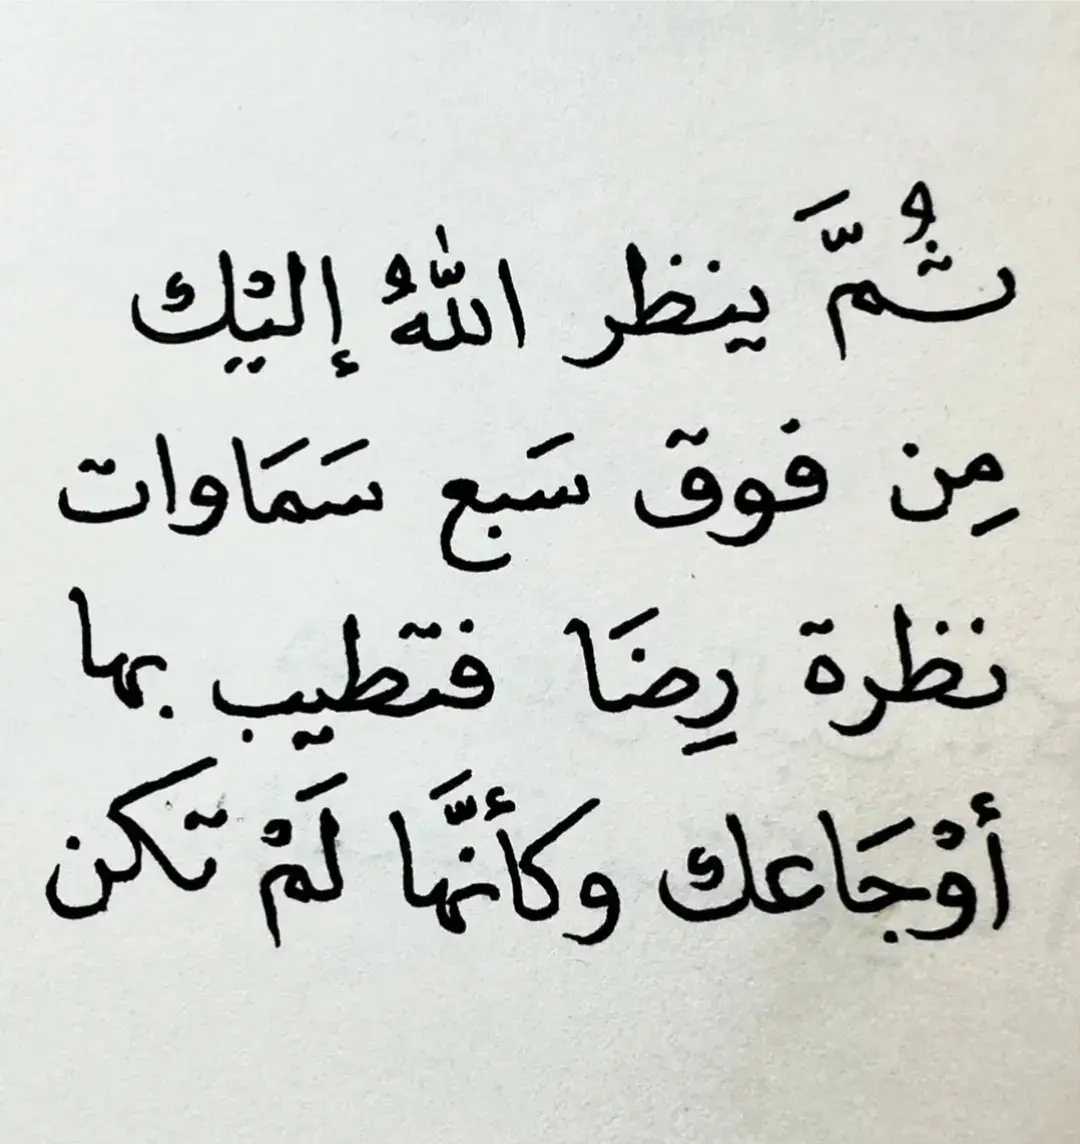 ثُمَّ ينظر اللّٰهُ إليْك
مِن فوق سَبع سَمَاوات
نظرة رِضَا فتطيب بها
أوْجَاعك وكأنَّها لَمْ تكن